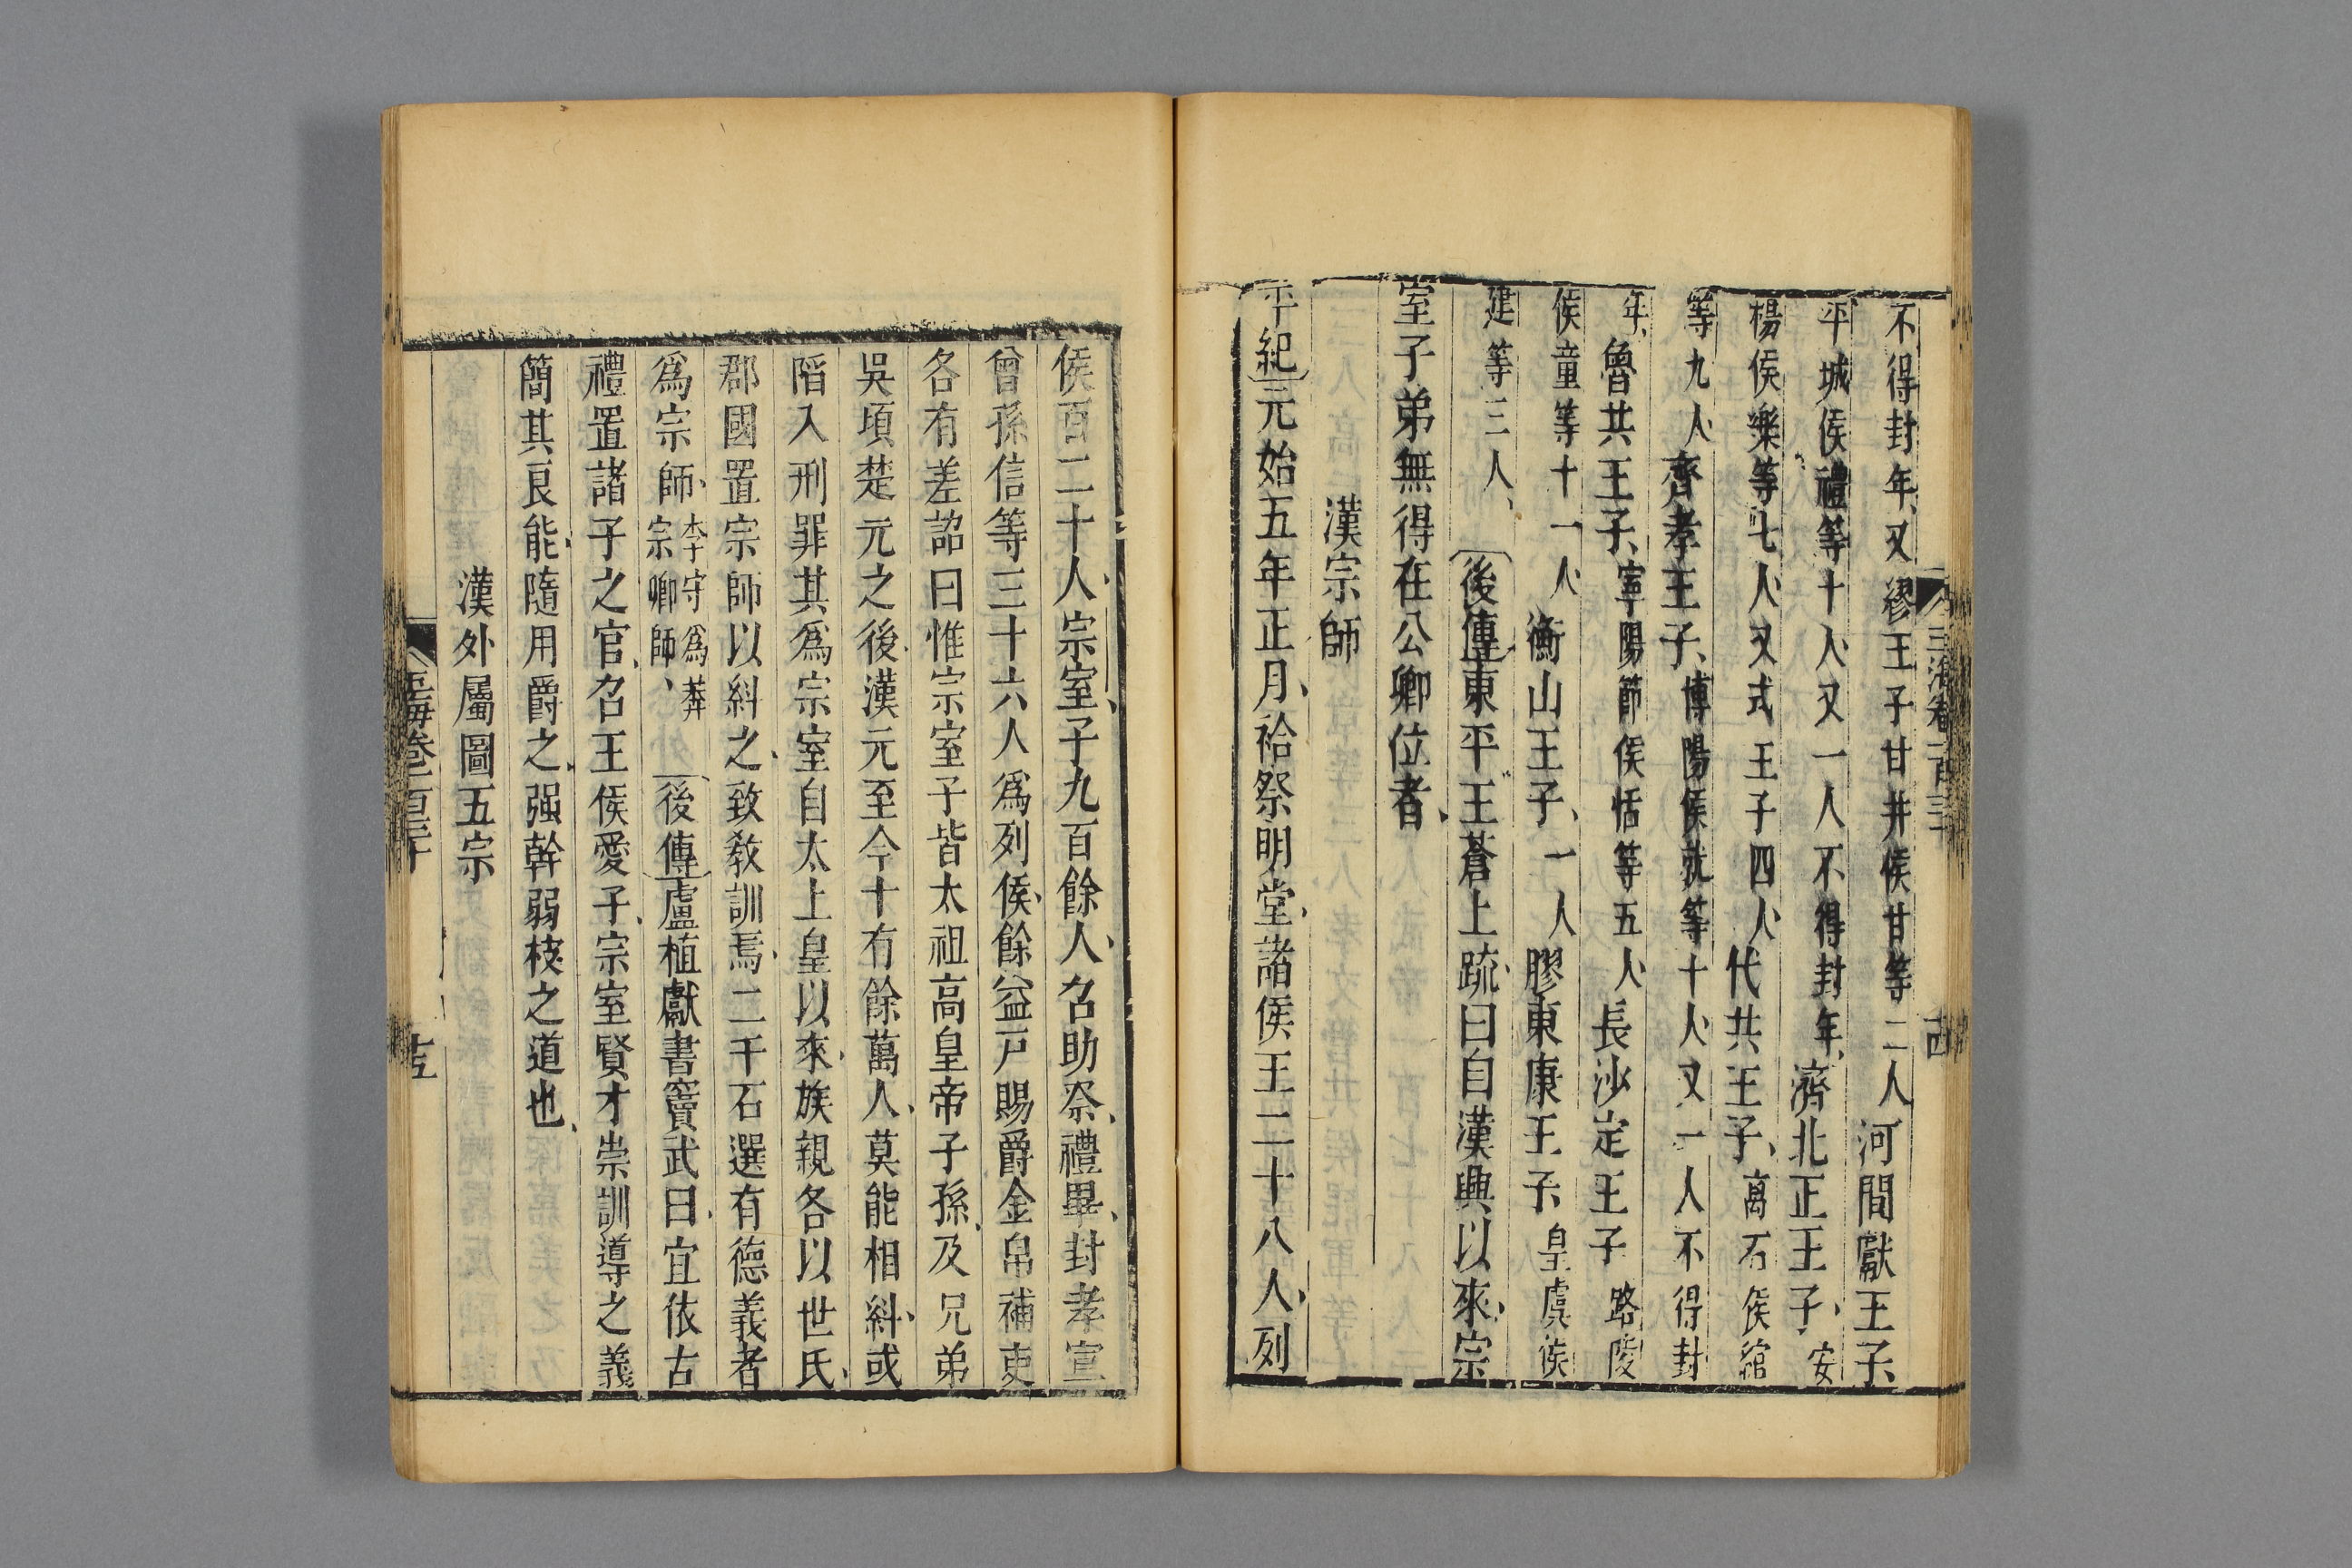 不得封年又繆王子甘井侯甘等二人河間獻王子
平城侯禮等十人又一人不得封年濟北正王子安
楊侯樂等七人又式王子四人代共王子离石侯綰
等九人齊孝王子博陽侯就等十人又一人不得封
年魯共王子寧陽節侯恬等五人長沙定王子路陵
侯童等十一人衡山王子一人膠東康王子皇虞侯
建等三人後傳東平王蒼上疏曰自漢興以來宗
室子弟無得在公卿位者
漢宗師
平紀元始五年正月祫祭明堂諸侯王二十八人列
侯百二十人宗室子九百餘人召助祭禮畢封孝宣
曾孫信等三十六人爲列侯餘益戸賜爵金帛補吏
各有差詔曰惟宗室子皆太祖高皇帝子孫及兄弟
吳頃楚元之後漢元至今十有餘萬人莫能相糾或
陷入刑罪其爲宗室自太上皇以來族親各以世氏
郡國置宗師以糾之致敎訓焉二千石選有德義者
爲宗師李守爲莽宗卿師後傳盧植獻書竇武曰宜依古
禮置諸子之官召王侯愛子宗室賢才崇訓導之義
簡其良能隨用爵之强幹弱枝之道也
漢外屬圖五宗
玉海卷一百三十
十五